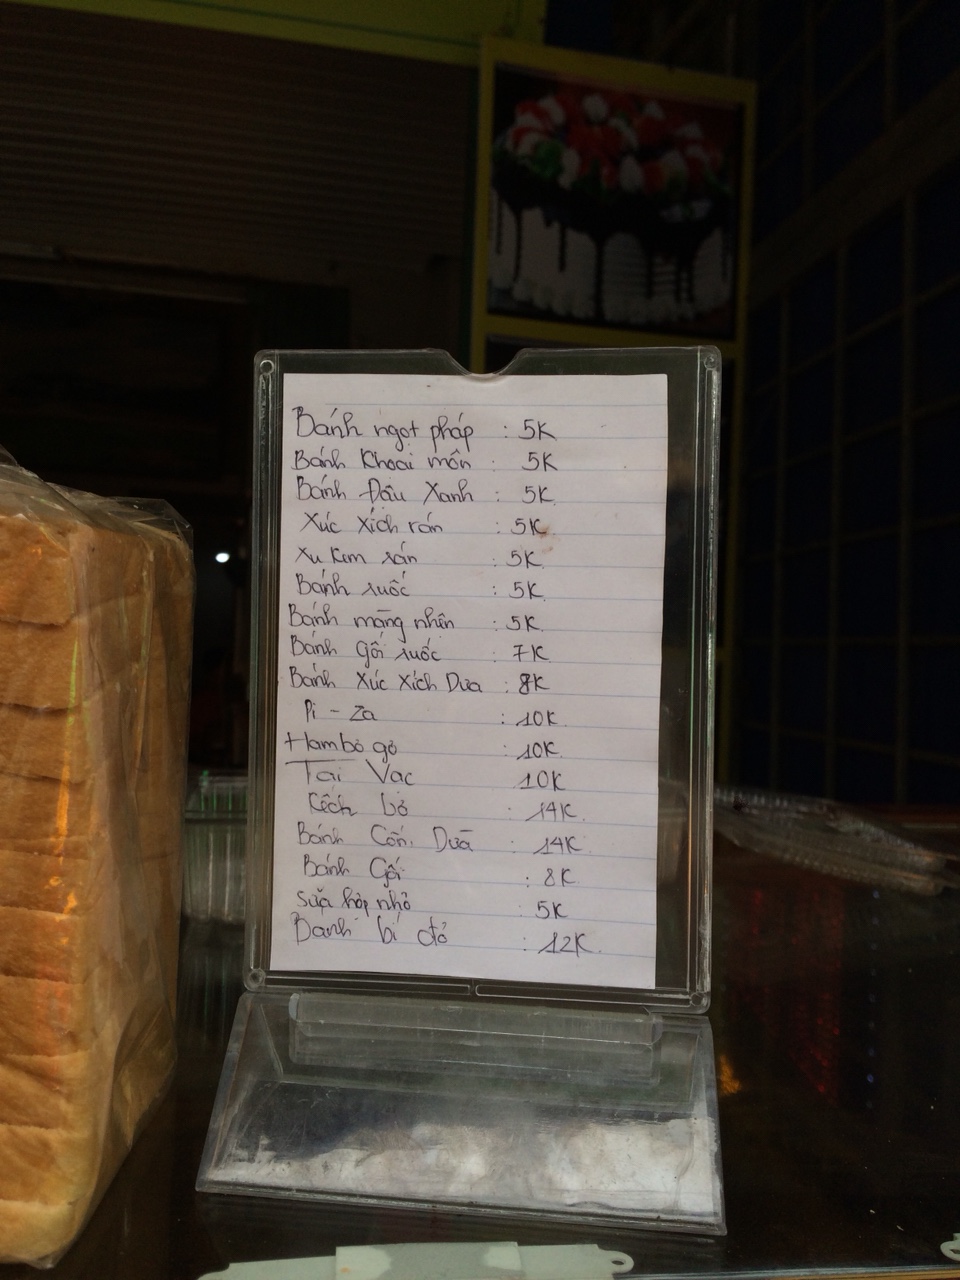 Bánh ngọt pháp : 5K
Bánh Khoai môn : 5K
Bánh Đậu Xanh : 5K
Xúc Xích rán : 5K
Xu Kem rán : 5K
Bánh ruốc : 5K
Bánh màng nhện : 5K
Bánh gối ruốc : 7K
Bánh Xúc Xích Dưa : 8K
Pi - Za : 10K
Hambơgơ : 10K
Tai Vạc 10K
Kếch bơ : 14K
Bánh Cốn Dừa : 14K
Bánh Gối : 8K
sữa hộp nhỏ : 5K
Bánh bí đỏ : 12K